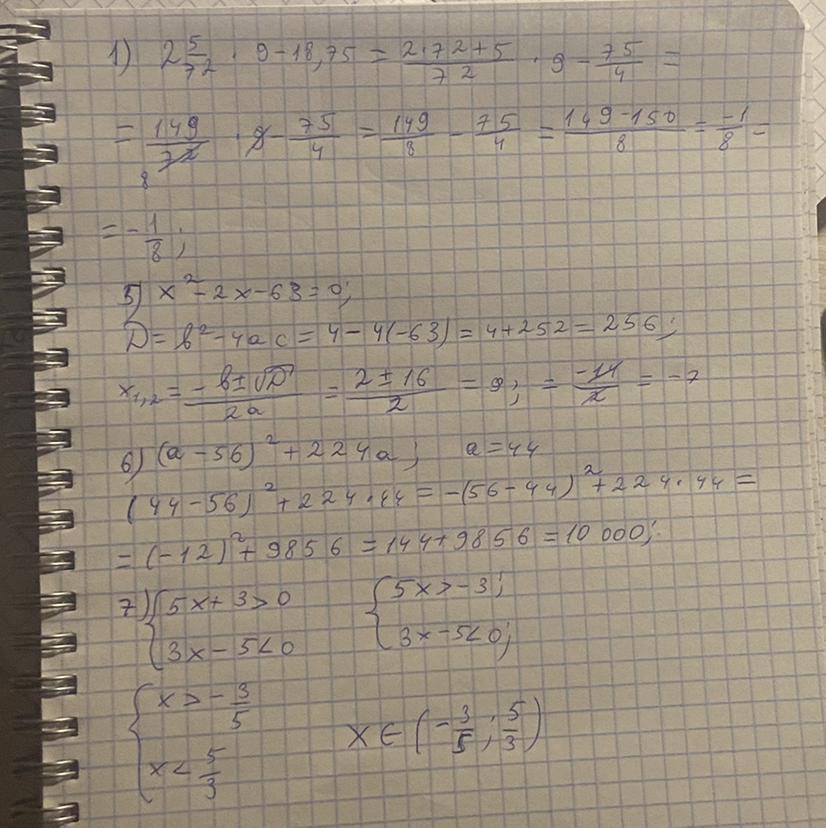 1) 2 5/72 · 9 - 18,75 = (2·72+5)/72 · 9 - 75/4 =
= 149/72 8 · 9 - 75/4 = 149/8 - 75/4 = (149-150)/8 = -1/8 =
= - 1/8;
5) x² - 2x - 63 = 0;
D = b² - 4ac = 4 - 4(-63) = 4 + 252 = 256;
x1,2 = (-b ± √D)/2a = (2 ± 16)/2 = 9; = -14/2 = -7
6) (a - 56)² + 224a; a = 44
(44 - 56)² + 224·44 = -(56 - 44)² + 224·44 =
= (-12)² + 9856 = 144 + 9856 = 10 000;
7) { 5x + 3 > 0 { 5x > -3;
3x - 5 < 0 3x - 5 < 0;
{ x > - 3/5
x < 5/3 x ∈ (- 3/5; 5/3)